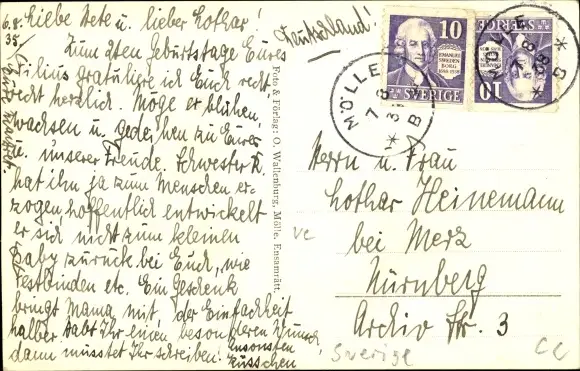 6.8.
38
Liebe Bete u. lieber Lothar!
Zum 2ten Geburtstage Eures
Filius gratuliere ich Euch recht
recht herzlich. Möge er blühen,
wachsen u. gedeihen zu Eurer
u. unserer Freude. Schwester R.
hat ihn ja zum Menschen er-
zogen, hoffentlich entwickelt
er sich nicht zum kleinen
Baby zurück bei Euch, wie
Festbinden etc. Ein Geschenk
bringt Mama mit, der Einfachheit
halber. Habt Ihr einen besonderen Wunsch,
dann müsstet Ihr schreiben. Ansonsten
Küsschen
Deutschland!
Foto & Förlag: O. Wallenburg, Mölle. Ensamrätt.
10
EMANUEL
SWEDEN
BORG
1688-1938
SVERIGE
10
EMANUEL
SWEDEN
BORG
SVERIGE
MÖLLE
7 8
38
B
MÖLLE
7 8
38
B
Herrn u. Frau
Lothar Heinemann
bei Merz
Nürnberg
Archiv Str. 3
ve
Sverige
CC